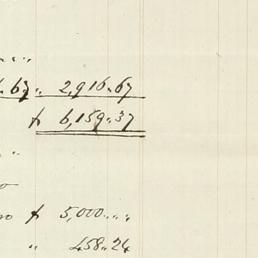 .67 „ 2,916.67
$ 6,159.37
„
$ 5,000 „ „
„ 458.24